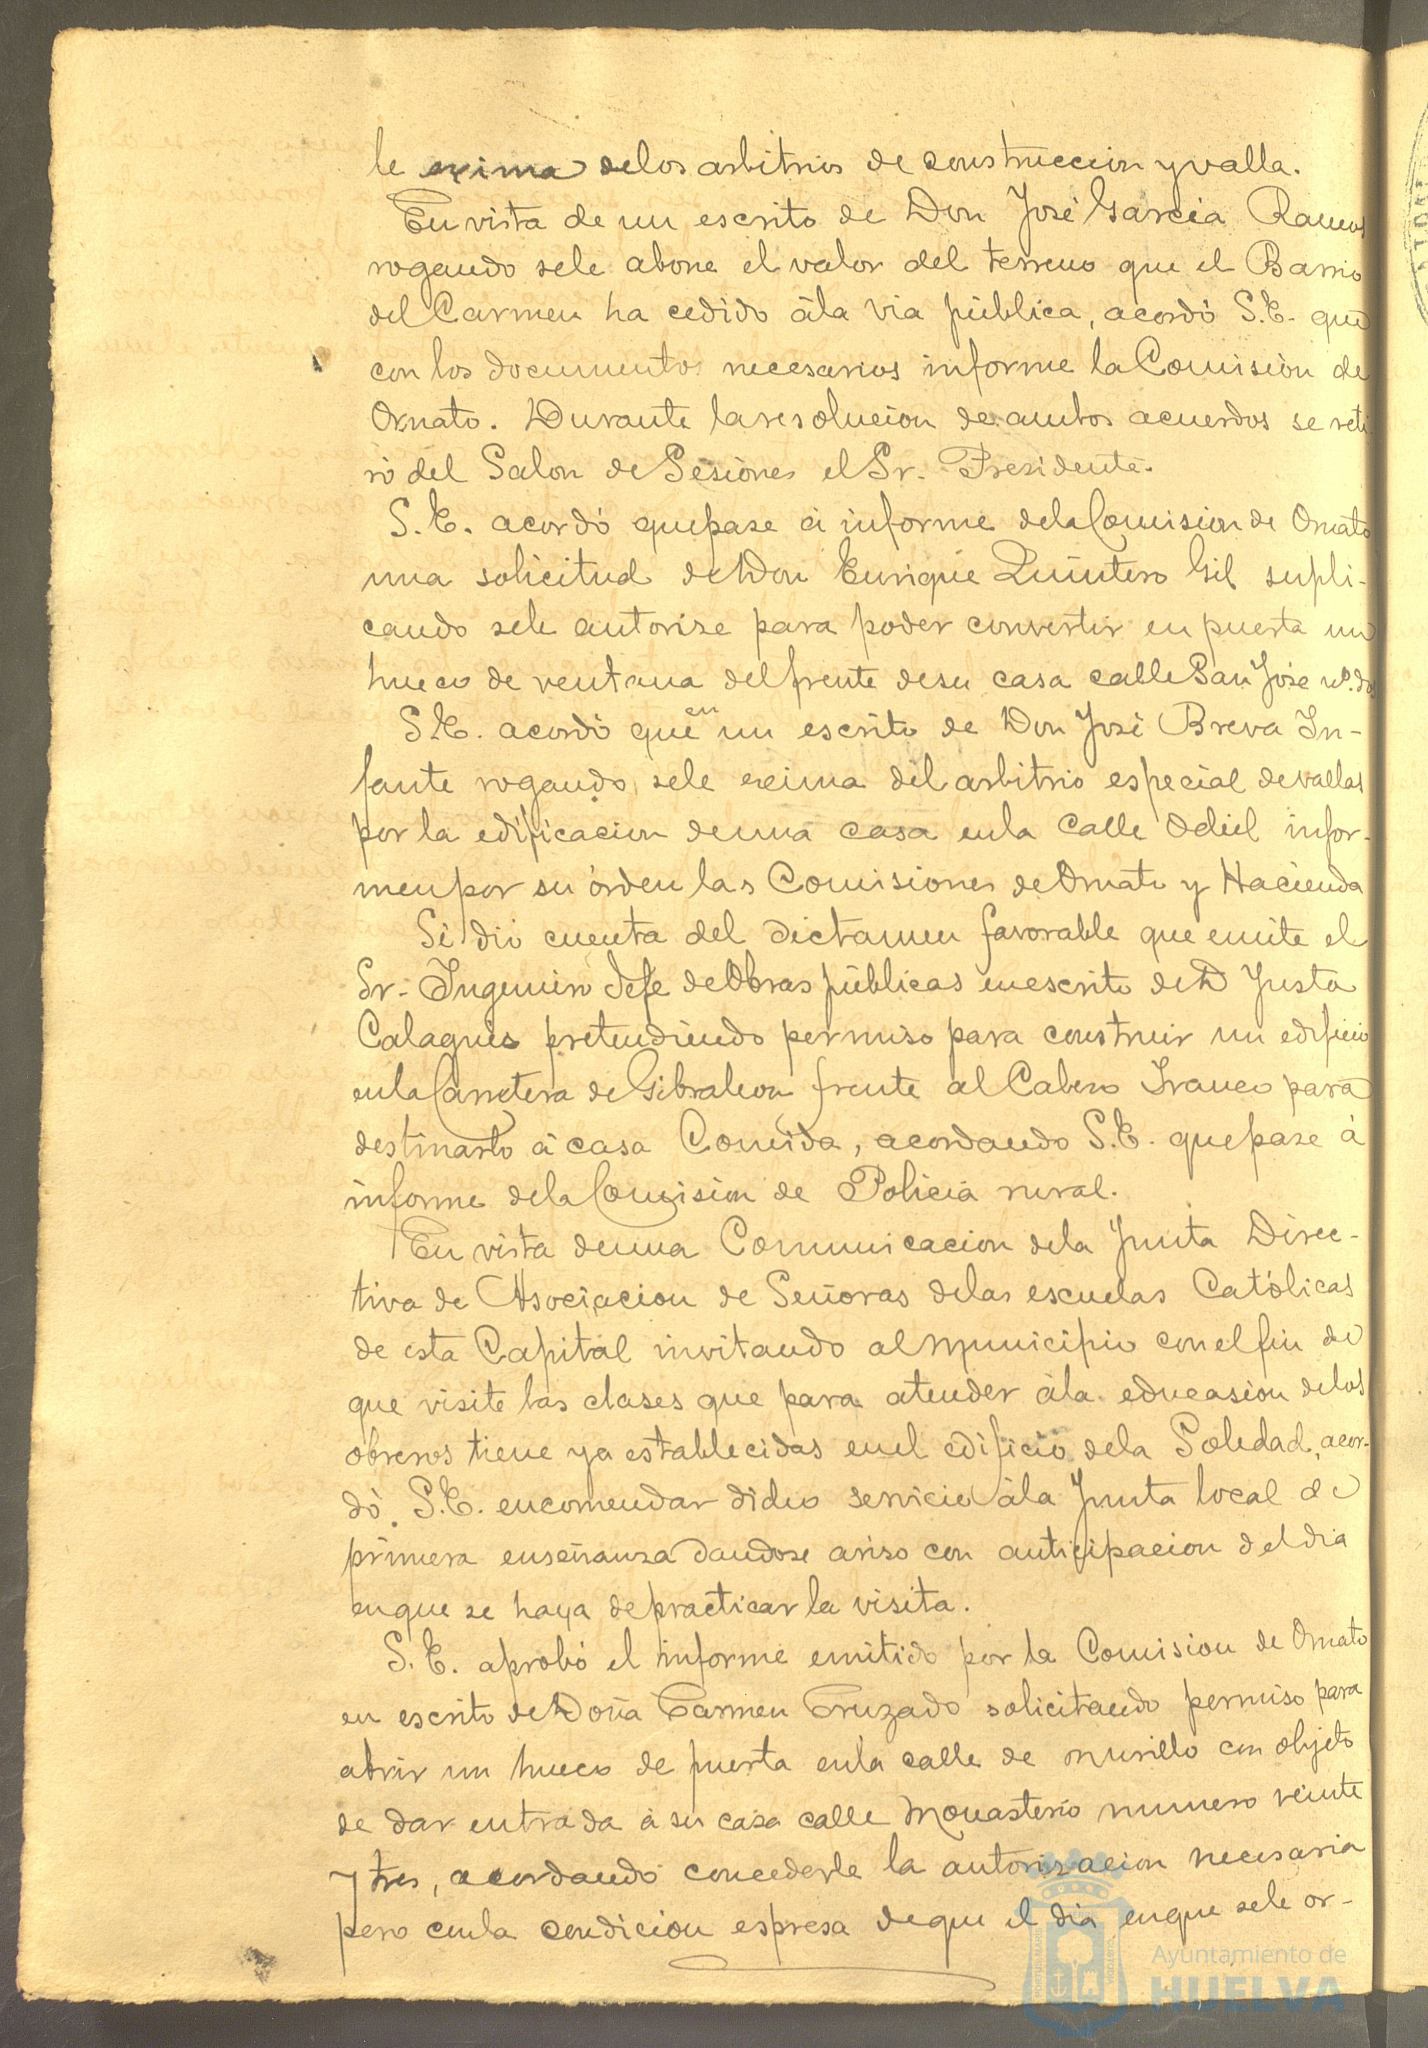 le exima delos arbitrios de construccion y valla.
En vista de un escrito de Don José Garcia Ramos
rogando sele abone el valor del terreno que el Barrio
del Carmen ha cedido ála via pública, acordó S.E. que
con los documentos necesarios informe la Comision de
Ornato. Durante la resolucion de ambos acuerdos se reti
ró del Salon de Sesiones el Sr. Presidente.
S.E. acordó que pase á informe dela Comision de Ornato
una solicitud de Don Enrique Quintero Gil supli-
cando sele autorize para poder convertir en puerta un
hueco de ventana del frente desu casa calle San José nº. dos
S.E. acordó que en un escrito de Don José Breva In-
fante rogando sele exima del arbitrio especial de vallas
por la edificacion deuna casa enla calle Odiel infor-
men por su órden las Comisiones de Ornato y Hacienda
Se dió cuenta del dictamen favorable que emite el
Sr. Ingeniero Jefe de Obras públicas en escrito de D Justa
Calagues pretendiendo permiso para construir un edificio
enla Carretera de Gibraleon frente al Cabezo Franco para
destinarlo á casa Comida, acordando S.E. que pase á
informe dela Comision de Policia rural.
En vista deuna Comunicacion dela Junta Direc-
tiva de Asociacion de Señoras delas escuelas Católicas
de esta Capital invitando al Municipio con el fin de
que visite las clases que para atender ála educasion delos
obreros tiene ya establecidas enel edificio dela Soledad, acor-
dó S.E. encomendar dicho servicio ála Junta local de
primera enseñanza dandose aviso con anticipacion del dia
enque se haya de practicar la visita.
S.E. aprobó el informe emitido por la Comision de Ornato
en escrito de Doña Carmen Cruzado solicitando permiso para
abrir un hueco de puerta enla calle de Murillo con objeto
de dar entrada á su casa calle Monasterio numero veinte
y tres, acordando concederle la autorizacion necesaria
pero conla condicion espresa deque el dia enque sele or-
Ayuntamiento de
HUELVA